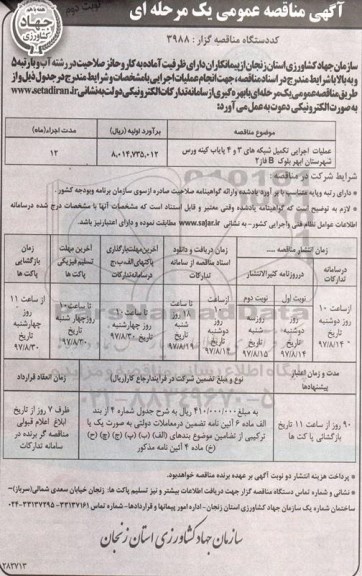 آگهی مناقصه عمومی یک مرحله ای
نوبت دوم
جهاد کشاورزی
کد دستگاه مناقصه گزار : ۳۹۸۸
سازمان جهاد کشاورزی استان زنجان از پیمانکاران دارای ظرفیت آماده به کار و حائز صلاحیت در رشته آب و با رتبه ۵
و به بالا با شرایط مندرج در اسناد مناقصه، جهت انجام عملیات اجرایی با مشخصات و شرایط مندرج در جدول ذیل و از
طریق مناقصه عمومی یک مرحله ای با بهره گیری از سامانه تدارکات الکترونیکی دولت به نشانی www.setadiran.ir
به صورت الکترونیکی دعوت به عمل می آورد:
موضوع مناقصه
برآورد اولیه (ریال)
مدت اجراء (ماه)
عملیات اجرایی تکمیل شبکه های ۳ و ۴ پایاب کینه ورس
شهرستان ابهر بلوک B فاز ۲
۸,۰۱۴,۷۳۵,۰۱۲
۱۲
شرایط شرکت در مناقصه :
• دارای رتبه و پایه متناسب با بر آورد یادشده و ارائه گواهینامه صلاحیت صادره از سوی سازمان برنامه و بودجه کشور.
• لازم به توضیح است که گواهینامه یادشده وقتی معتبر و قابل استناد است که مشخصات آنها با مشخصات درج شده در سامانه
اطلاعات عوامل نظام فنی و اجرایی کشور - به نشانی www.sajar.ir مطابقت نموده و دارای اعتبار نیز باشد.
زمان انتشار مناقصه
در سامانه تدارکات
در روزنامه کثیرالانتشار
زمان دریافت و دانلود اسناد مناقصه از سامانه تدارکات
آخرین مهلت بارگذاری پاکتهای الف، ب، ج در سامانه تدارکات
آخرین مهلت تسلیم فیزیکی پاکت ها
زمان بازگشایی پاکت ها
از ساعت ۱۰ روز دوشنبه تاریخ ۹۷/۸/۱۴
نوبت اول روز دوشنبه تاریخ ۹۷/۸/۱۴
نوبت دوم روز سه شنبه تاریخ ۹۷/۸/۱۵
از ساعت ۱۰ روز دوشنبه تاریخ ۹۷/۸/۱۴
تا ساعت ۱۸ روز شنبه تاریخ ۹۷/۸/۱۹
تا ساعت ۱۰ روز چهارشنبه تاریخ ۹۷/۸/۳۰
تا ساعت ۱۰ روز چهار شنبه تاریخ ۹۷/۸/۳۰
از ساعت ۱۱ روز چهارشنبه تاریخ ۹۷/۸/۳۰
مدت و زمان اعتبار پیشنهادها
نوع و مبلغ تضمین شرکت در فرآیند ارجاع کار (ریال)
زمان انعقاد قرارداد
۹۰ روز از ساعت ۱۱ تاریخ بازگشائی پاکت ها
به مبلغ ۴۱۰/۰۰۰/۰۰۰ ریال به شرح جدول شماره ۴ از بند
الف ماده ۶ آئین نامه تضمین در معاملات دولتی به صورت یک یا
ترکیبی از تضامین موضوع بندهای (الف) (ب) (پ) (ج) (چ) (ح)
(خ) ماده ۴ آئین نامه مذکور
ظرف ۷ روز از تاریخ ابلاغ اعلام قبولی مناقصه گر برنده در سامانه تدارکات
• پرداخت هزینه انتشار دو نوبت آگهی بر عهده برنده مناقصه خواهد بود.
• نشانی و شماره تماس دستگاه مناقصه گزار جهت دریافت اطلاعات بیشتر و نیز تسلیم پاکت ها: زنجان خیابان سعدی شمالی (سرباز) –
ساختمان شماره یک سازمان جهاد کشاورزی استان زنجان – اداره امور پیمانها و قراردادها – شماره تماس ۳۳۱۳۷۱۶۱-۳۳۱۳۷۲۹۵-۰۲۴
سازمان جهاد کشاورزی استان زنجان